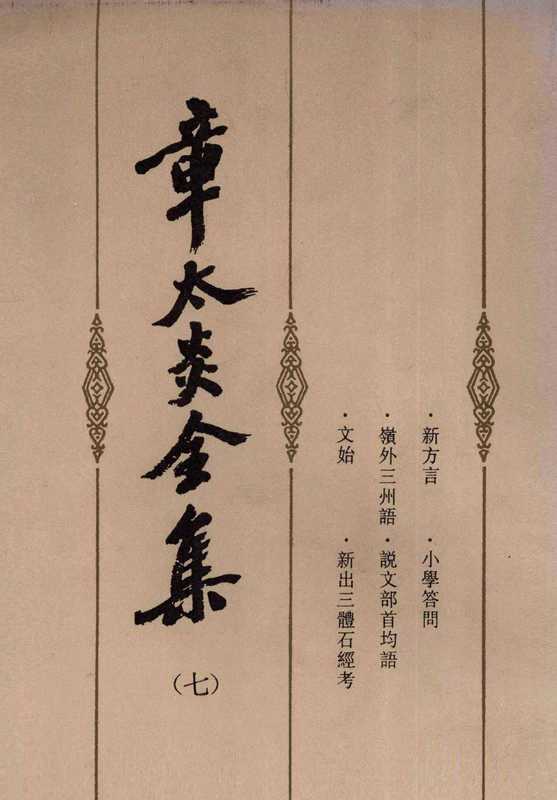 章太炎全集
（七）
·新方言 ·小學答問
·嶺外三州語·説文部首均語
·文始 ·新出三體石經考